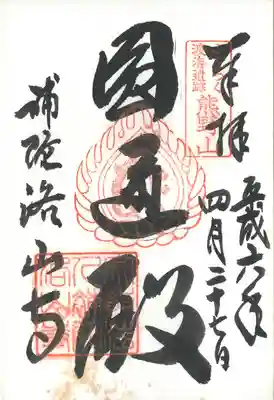 奉拝
平成六年
四月二十七日
圓通殿
補陀洛山寺
渡海遺跡
熊野山